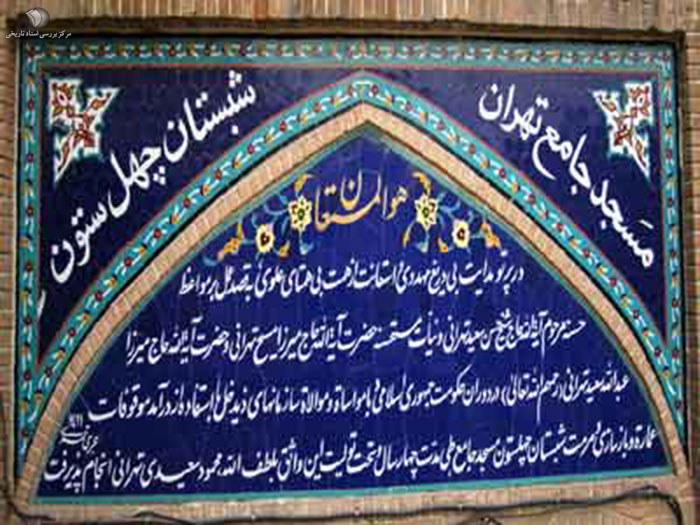 مرکز بررسی اسناد تاریخی
مسجد جامع تهران
شبستان چهل ستون
هوالمستعان
در پرتو هدایت بی دریغ مهدوی و استعانت از همت بی همتای علوی به قصد عمل بر مواعظ
حسنه مرحوم آیةالله حاج شیخ حسن سعید تهرانی و نیات مستحسنه حضرت آیةالله حاج میرزا مسیح تهرانی و حضرت آیةالله حاج میرزا
عبدالله سعید تهرانی (رحمهم الله تعالی) در دوران حکومت جمهوری اسلامی و با مواساة و موالاة سازمانهای ذیدخل با استفاده از درآمد موقوفات
عمارة و بازسازی و مرمت شبستان چهلستون مسجد جامع طی مدت چهار سال و تحت تولیت این واثق بلطف الله محمود سعیدی تهرانی انجام پذیرفت